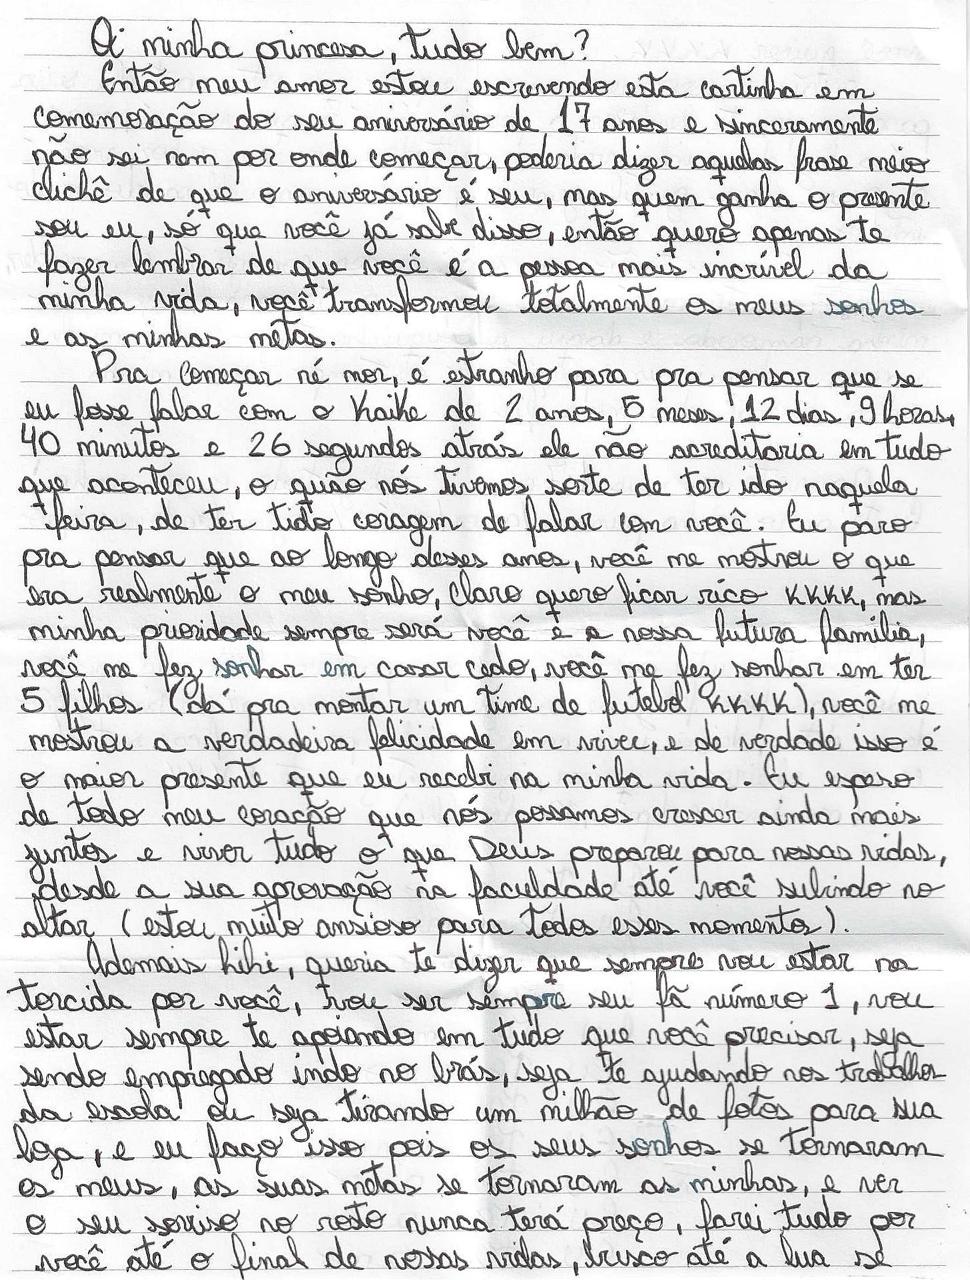 Oi minha princesa, tudo bem?
Então meu amor estou escrevendo esta cartinha em
comemoração do seu aniversário de 17 anos e sinceramente
não sei nem por onde começar, poderia dizer aquelas frase meio
clichê de que o aniversário é seu, mas quem ganha o presente
sou eu, só que você já sabe disso, então quero apenas te
fazer lembrar de que você é a pessoa mais incrível da
minha vida, você transformou totalmente os meus sonhos
e as minhas metas.
Pra começar né mor, é estranho para pra pensar que se
eu fosse falar com o Kaike de 2 anos, 5 meses, 12 dias, 9 horas,
40 minutos e 26 segundos atrás ele não acreditaria em tudo
que aconteceu, o quão nós tivemos sorte de ter ido naquela
feira, de ter tido coragem de falar com você. Eu paro
pra pensar que ao longo desses anos, você me mostrou o que
era realmente o meu sonho, claro quero ficar rico kkkk, mas
minha prioridade sempre será você e a nossa futura família,
você me fez sonhar em casar cedo, você me fez sonhar em ter
5 filhos (dá pra montar um time de futebol kkkk), você me
mostrou a verdadeira felicidade em viver, e de verdade isso é
o maior presente que eu recebi na minha vida. Eu espero
de todo meu coração que nós possamos crescer ainda mais
juntos e viver tudo o que Deus preparou para nossas vidas,
desde a sua aprovação na faculdade até você subindo no
altar (estou muito ansioso para todos esses momentos).
Ademais hihi, queria te dizer que sempre vou estar na
torcida por você, vou ser sempre seu fã número 1, vou
estar sempre te apoiando em tudo que você precisar, seja
sendo empregado indo no brás, seja te ajudando nos trabalhos
da escola ou seja tirando um milhão de fotos para sua
loja, e eu faço isso pois os seus sonhos se tornaram
os meus, as suas metas se tornaram as minhas, e ver
o seu sorriso no rosto nunca terá preço, farei tudo por
você até o final de nossas vidas, busco até a lua se